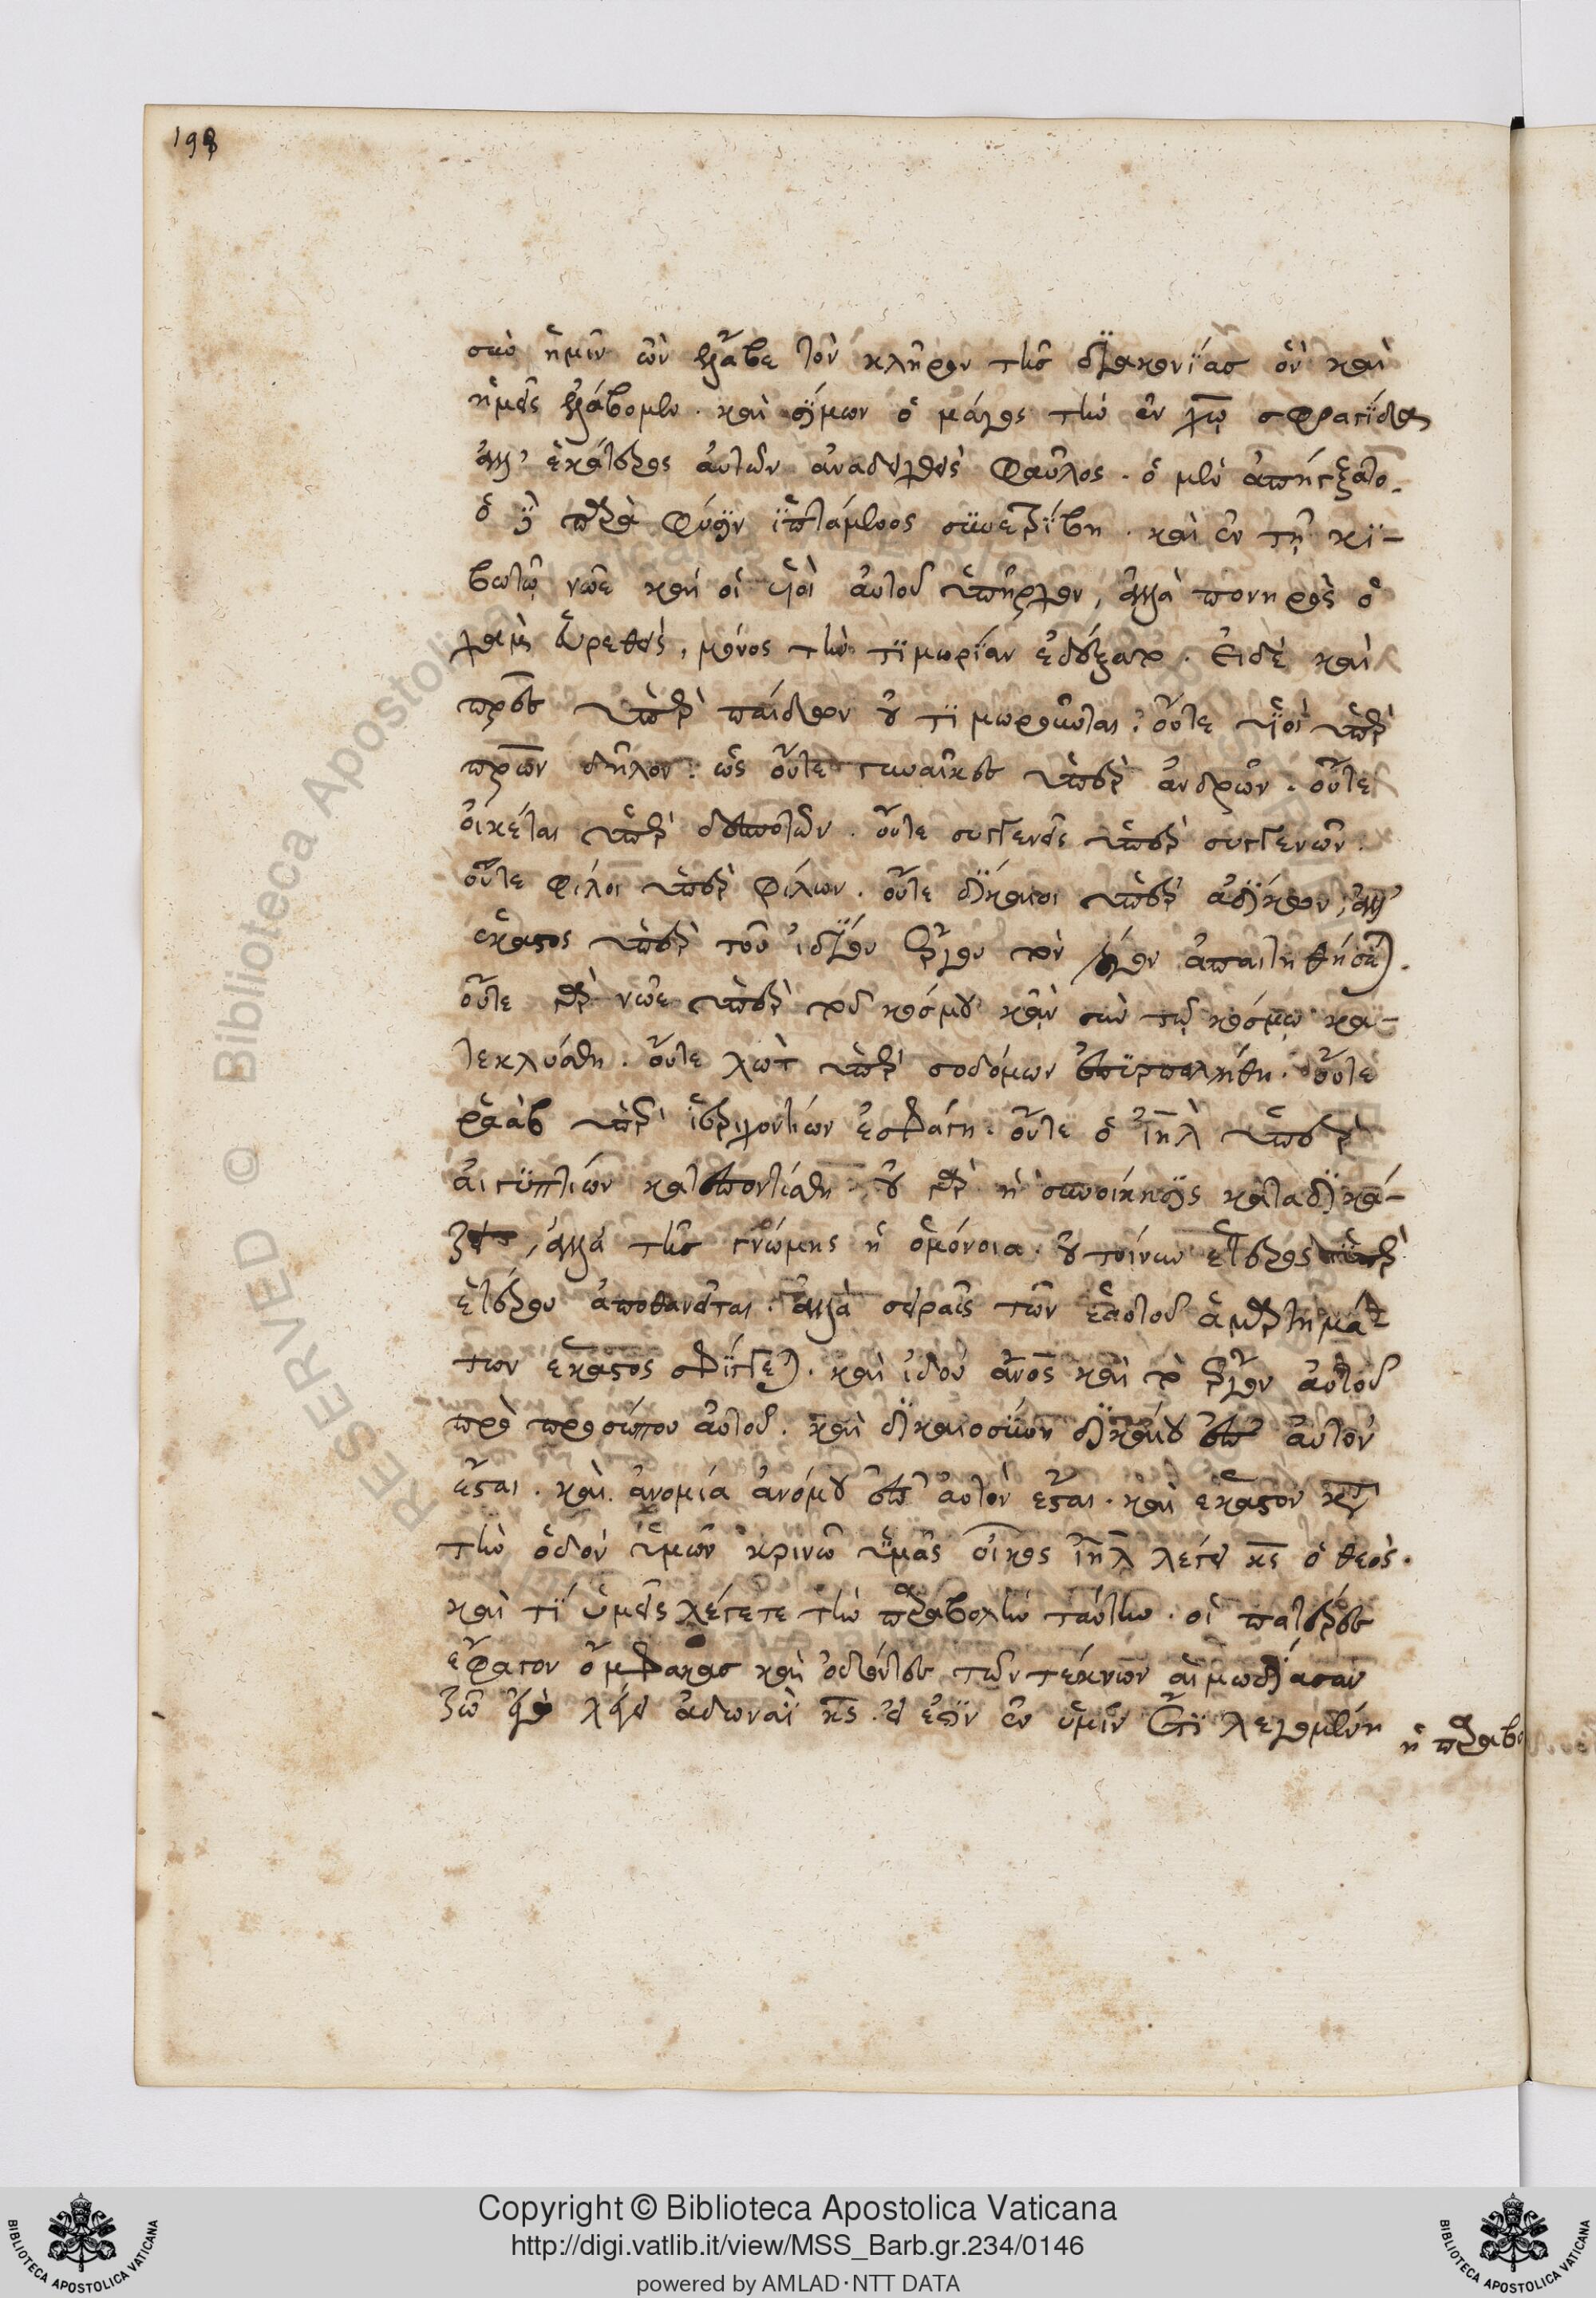 198
σὺν ἡμῖν ὢν ἔλαβε τὸν κλῆρον τῆς διακονίας ὃν καὶ
ἡμεῖς ἐλάβομεν. καὶ σίμων ὁ μάγος τὴν ἐν χω σφραγίδα
ἀλλ' ἑκάτερος αὐτῶν ἀναδειχθεὶς φαῦλος. ὁ μὲν ἀπήγξατο.
ὁ δὲ παρὰ φύσιν ἱπτάμενος συνετρίβη. καὶ ἐν τῇ κι-
βωτῷ νῶε καὶ οἱ υἱοὶ αὐτοῦ ὑπῆρχον, ἀλλὰ πονηρὸς ὁ
χαμ εὑρεθεὶς, μόνος τὴν τιμωρίαν ἐδέξατο. εἰ δὲ καὶ
πρες ὑπὲρ παίδων οὐ τιμωροῦνται. οὔτε υἱοὶ ὑπὲρ
πρων δῆλον. ὡς οὔτε γυναῖκες ὑπὲρ ἀνδρῶν. οὔτε
οἰκέται ὑπὲρ δεσποτῶν. οὔτε συγγενεῖς ὑπὲρ συγγενῶν.
οὔτε φίλοι ὑπὲρ φίλων. οὔτε δίκαιοι ὑπὲρ ἀδίκων, ἀλλ'
ἕκαστος ὑπὲρ τοῦ ἰδίου ἔργου τὸν λόγον ἀπαιτηθήσεται.
οὔτε γὰρ νῶε ὑπὲρ τοῦ κόσμου καὶ σὺν τῷ κόσμῳ κα-
τεκλύσθη. οὔτε λὼτ ὑπὲρ σοδόμων ἐπυρπολήθη. οὔτε
ῥαὰβ ὑπὲρ ἱεριχοντίων ἐσφάγη. οὔτε ὁ ιηλ ὑπὲρ
αἰγυπτίων κατεποντίσθη. οὐ γὰρ ἡ συνοίκησις καταδικά-
ζει, ἀλλὰ τῆς γνώμης ἡ ὁμόνοια. οὐ τοίνυν ἕτερος ὑπὲρ
ἑτέρου ἀποθανεῖται. ἀλλὰ σειραῖς τῶν ἑαυτοῦ ἁμαρτημά-
των ἕκαστος σφίγγεται. καὶ ἰδοὺ ἄνος καὶ τὸ ἔργον αὐτοῦ
πρὸ προσώπου αὐτοῦ. καὶ δικαιοσύνη δικαίου ἐπ' αὐτὸν
ἔσται. καὶ ἀνομία ἀνόμου ἐπ' αὐτὸν ἔσται. καὶ ἕκαστον κατὰ
τὴν ὁδὸν ὑμῶν κρινῶ ὑμᾶς οἶκος ιηλ λέγει κς ὁ θεὸς.
καὶ τί ὑμεῖς λέγετε τὴν παραβολὴν ταύτην. οἱ πατέρες
ἔφαγον ὄμφακας καὶ ὀδόντες τῶν τέκνων αἱμωδίασαν
ζῶ ἐγὼ λέγει ἀδωναῒ κς. εἰ ἔσιν ἐν ὑμῖν ἔτι λεγομένη
ἡ παραβο
Copyright © Biblioteca Apostolica Vaticana
http://digi.vatlib.it/view/MSS_Barb.gr.234/0146
powered by AMLAD·NTT DATA
RESERVED © Biblioteca Apostolica
BIBLIOTECA APOSTOLICA VATICANA
BIBLIOTECA APOSTOLICA VATICANA